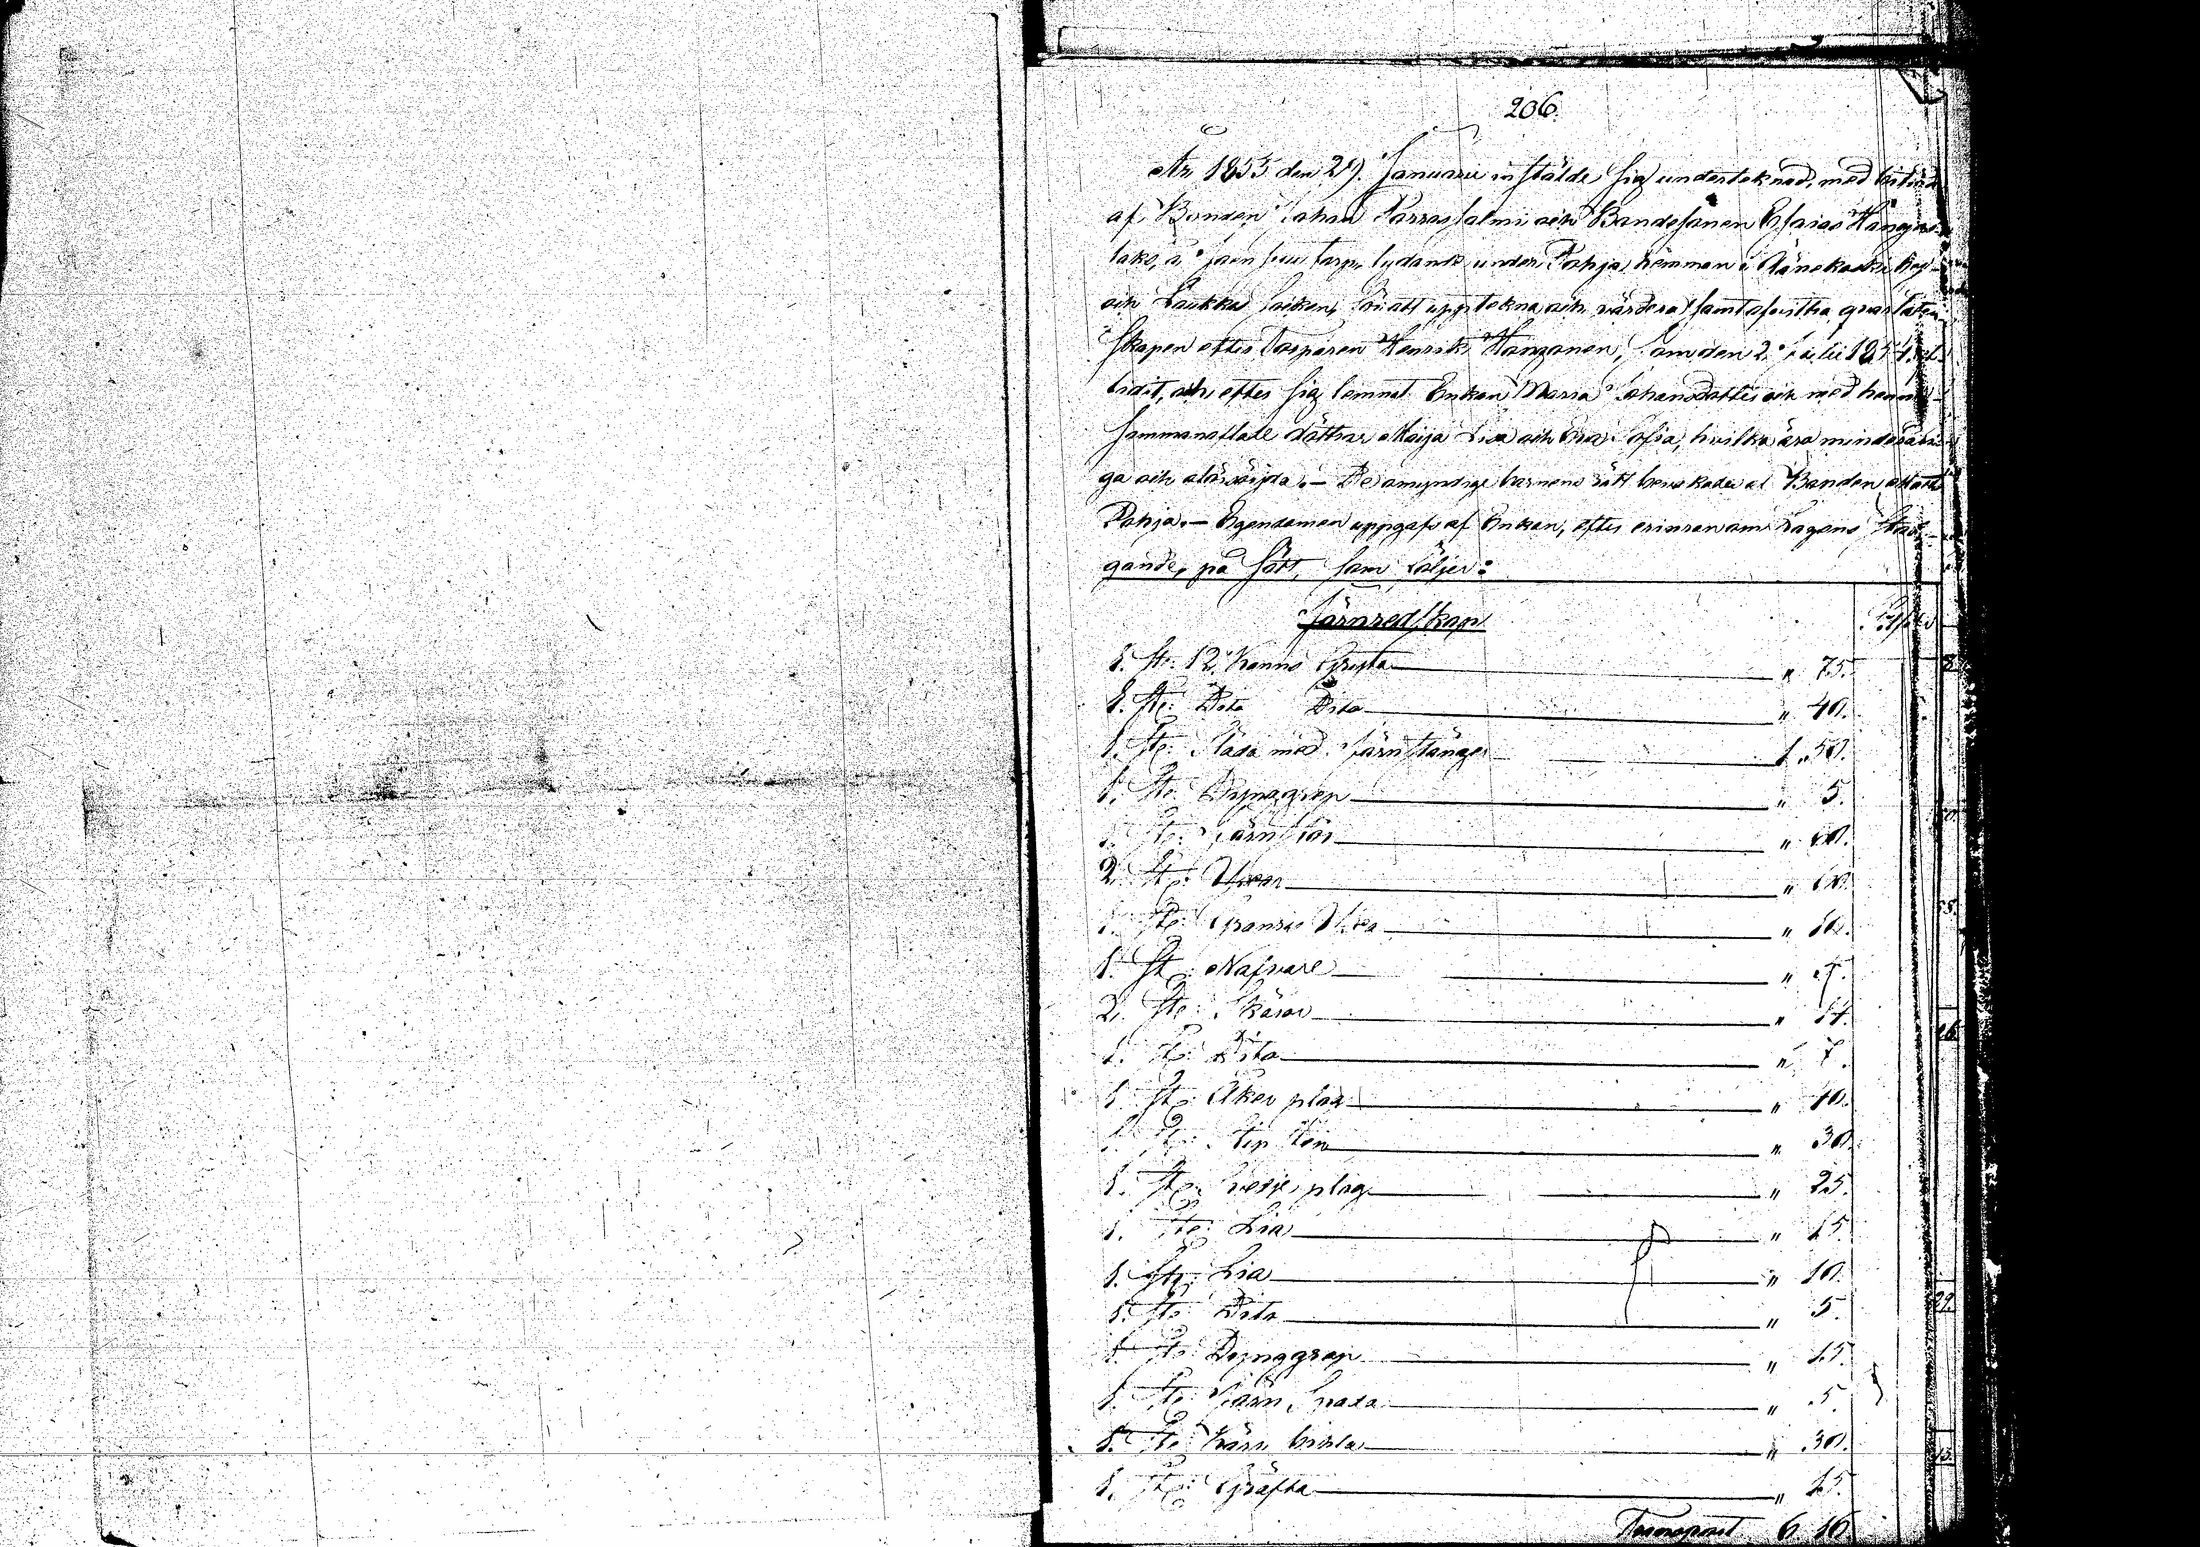 206.
År 1855 den 29. Januarii instälde sig undertecknad, med biträde
af Bonden Johan Parrassalmi och Bondesonen Esaias Hänni-
lako, å Jaensuu torp, lydande under Pohja hemman i Äänekoski by
och Laukka Socken, för att uppteckna och värdera samt afvittra qvarlåten-
skapen efter Torparen Henrik Manganen, som den 2 Julii 1854 af-
lidit, och efter sig lemnat Enkan Maria Johansdotter och med henne
sammanaflade döttrar Maija Lisa och Eva Sofia, hvilka äro minderåri-
ga och oförsörjda. — De omyndige barnens rätt bevakades af Bonden Matts
Pohja. — Egendomen uppgafs af Enkan, efter erinran om Lagens stad-
gande, på sätt, som följer:
Järnredskap
1. st: 12. Kanns Gryta " 75.
1. st: Dito Dito " 40.
1. st: Släda med Järnstänger 1. 50.
1. st: Dynggrep " 5.
1. st: Järnstör " 60.
2. st: Yxor " 60.
1. st: Yxa " 10.
1. st: Nafvare " 7.
2. st: Skäror " 14.
1. st: Dito " 7.
1 st: Åker plog " 40.
1. st: Slip sten " 30.
1. st: plog " 25.
1. st: Lia " 15
1. st: Lia " 10.
1. st: Dito " 5.
1 st: Dynggrep " 15.
1. st: Järn Spada " 5.
1. st: " 30.
1. st: Gräfta " 15.
Transport 6. 16